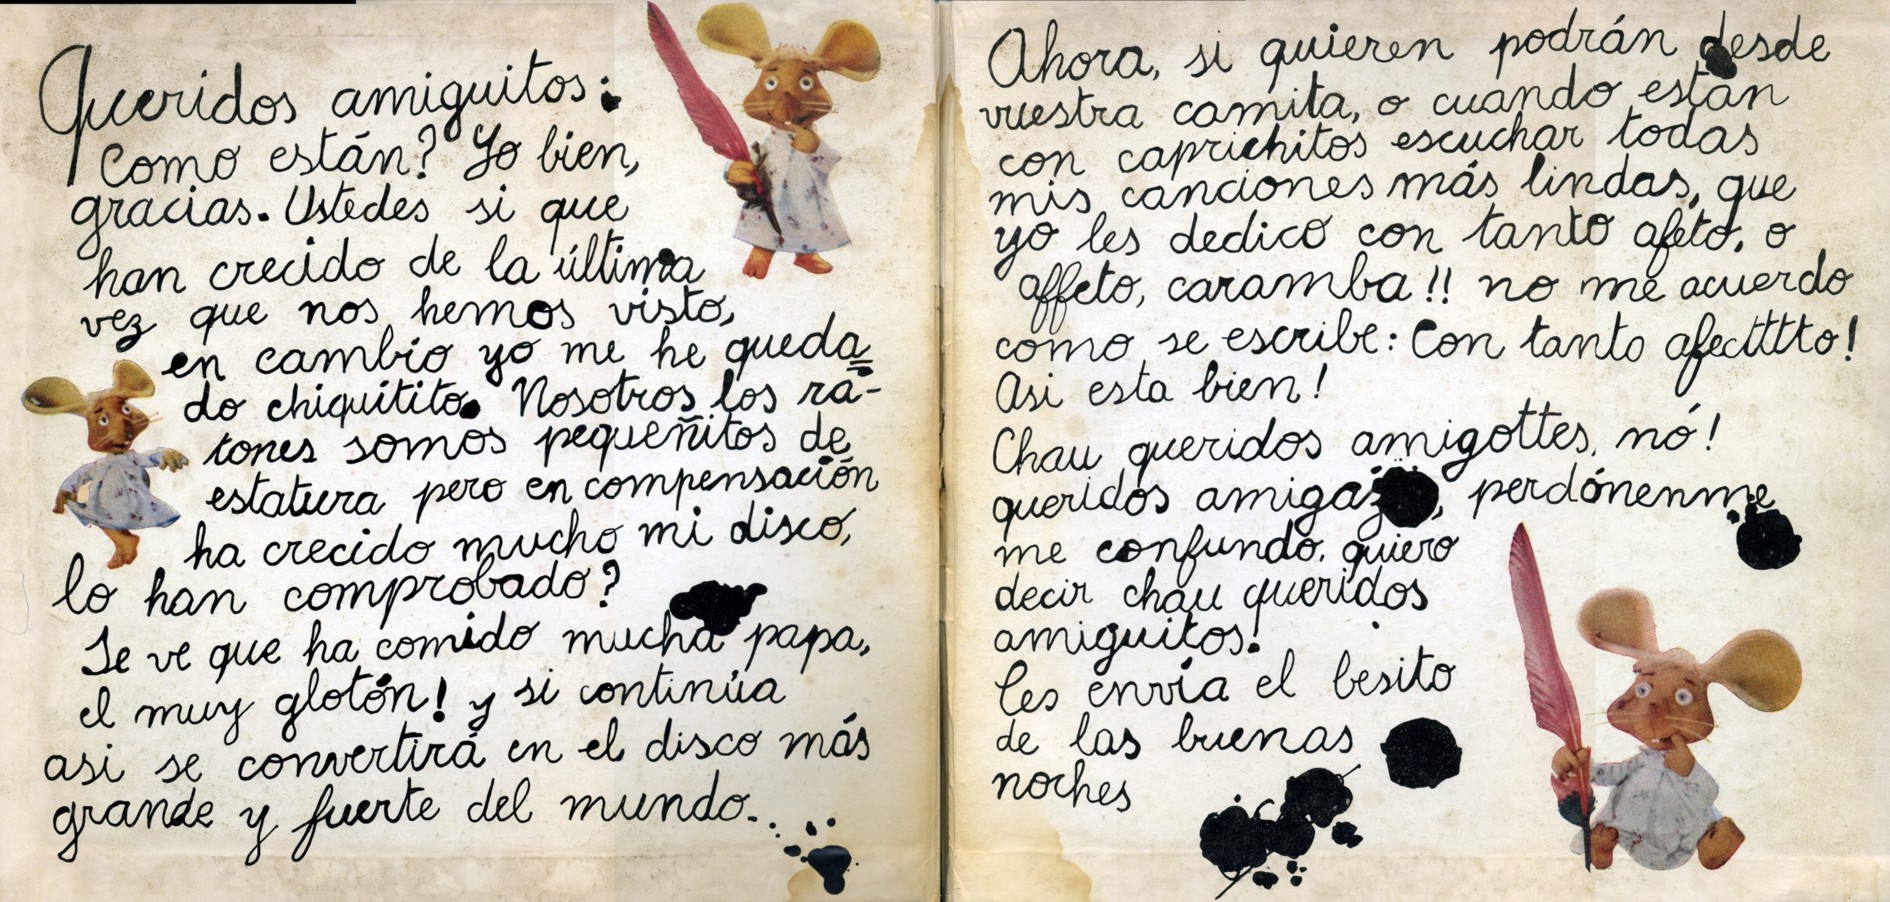 Queridos amiguitos:
Como están? Yo bien,
gracias. Ustedes si que
han crecido de la última
vez que nos hemos visto,
en cambio yo me he queda=
do chiquitito. Nosotros los ra-
tones somos pequeñitos de
estatura pero en compensación
ha crecido mucho mi disco,
lo han comprobado?
Se ve que ha comido mucha papa,
el muy glotón! y si continúa
asi se convertirá en el disco más
grande y fuerte del mundo...
Ahora, si quieren podrán desde
vuestra camita, o cuando están
con caprichitos escuchar todas
mis canciones más lindas, que
yo les dedico con tanto afeto, o
affeto, caramba!! no me acuerdo
como se escribe: Con tanto afectttto!
Asi esta bien!
Chau queridos amigottes, nó!
queridos amigaz, perdónenme
me confundo, quiero
decir chau queridos
amiguitos.
Les envía el besito
de las buenas
noches